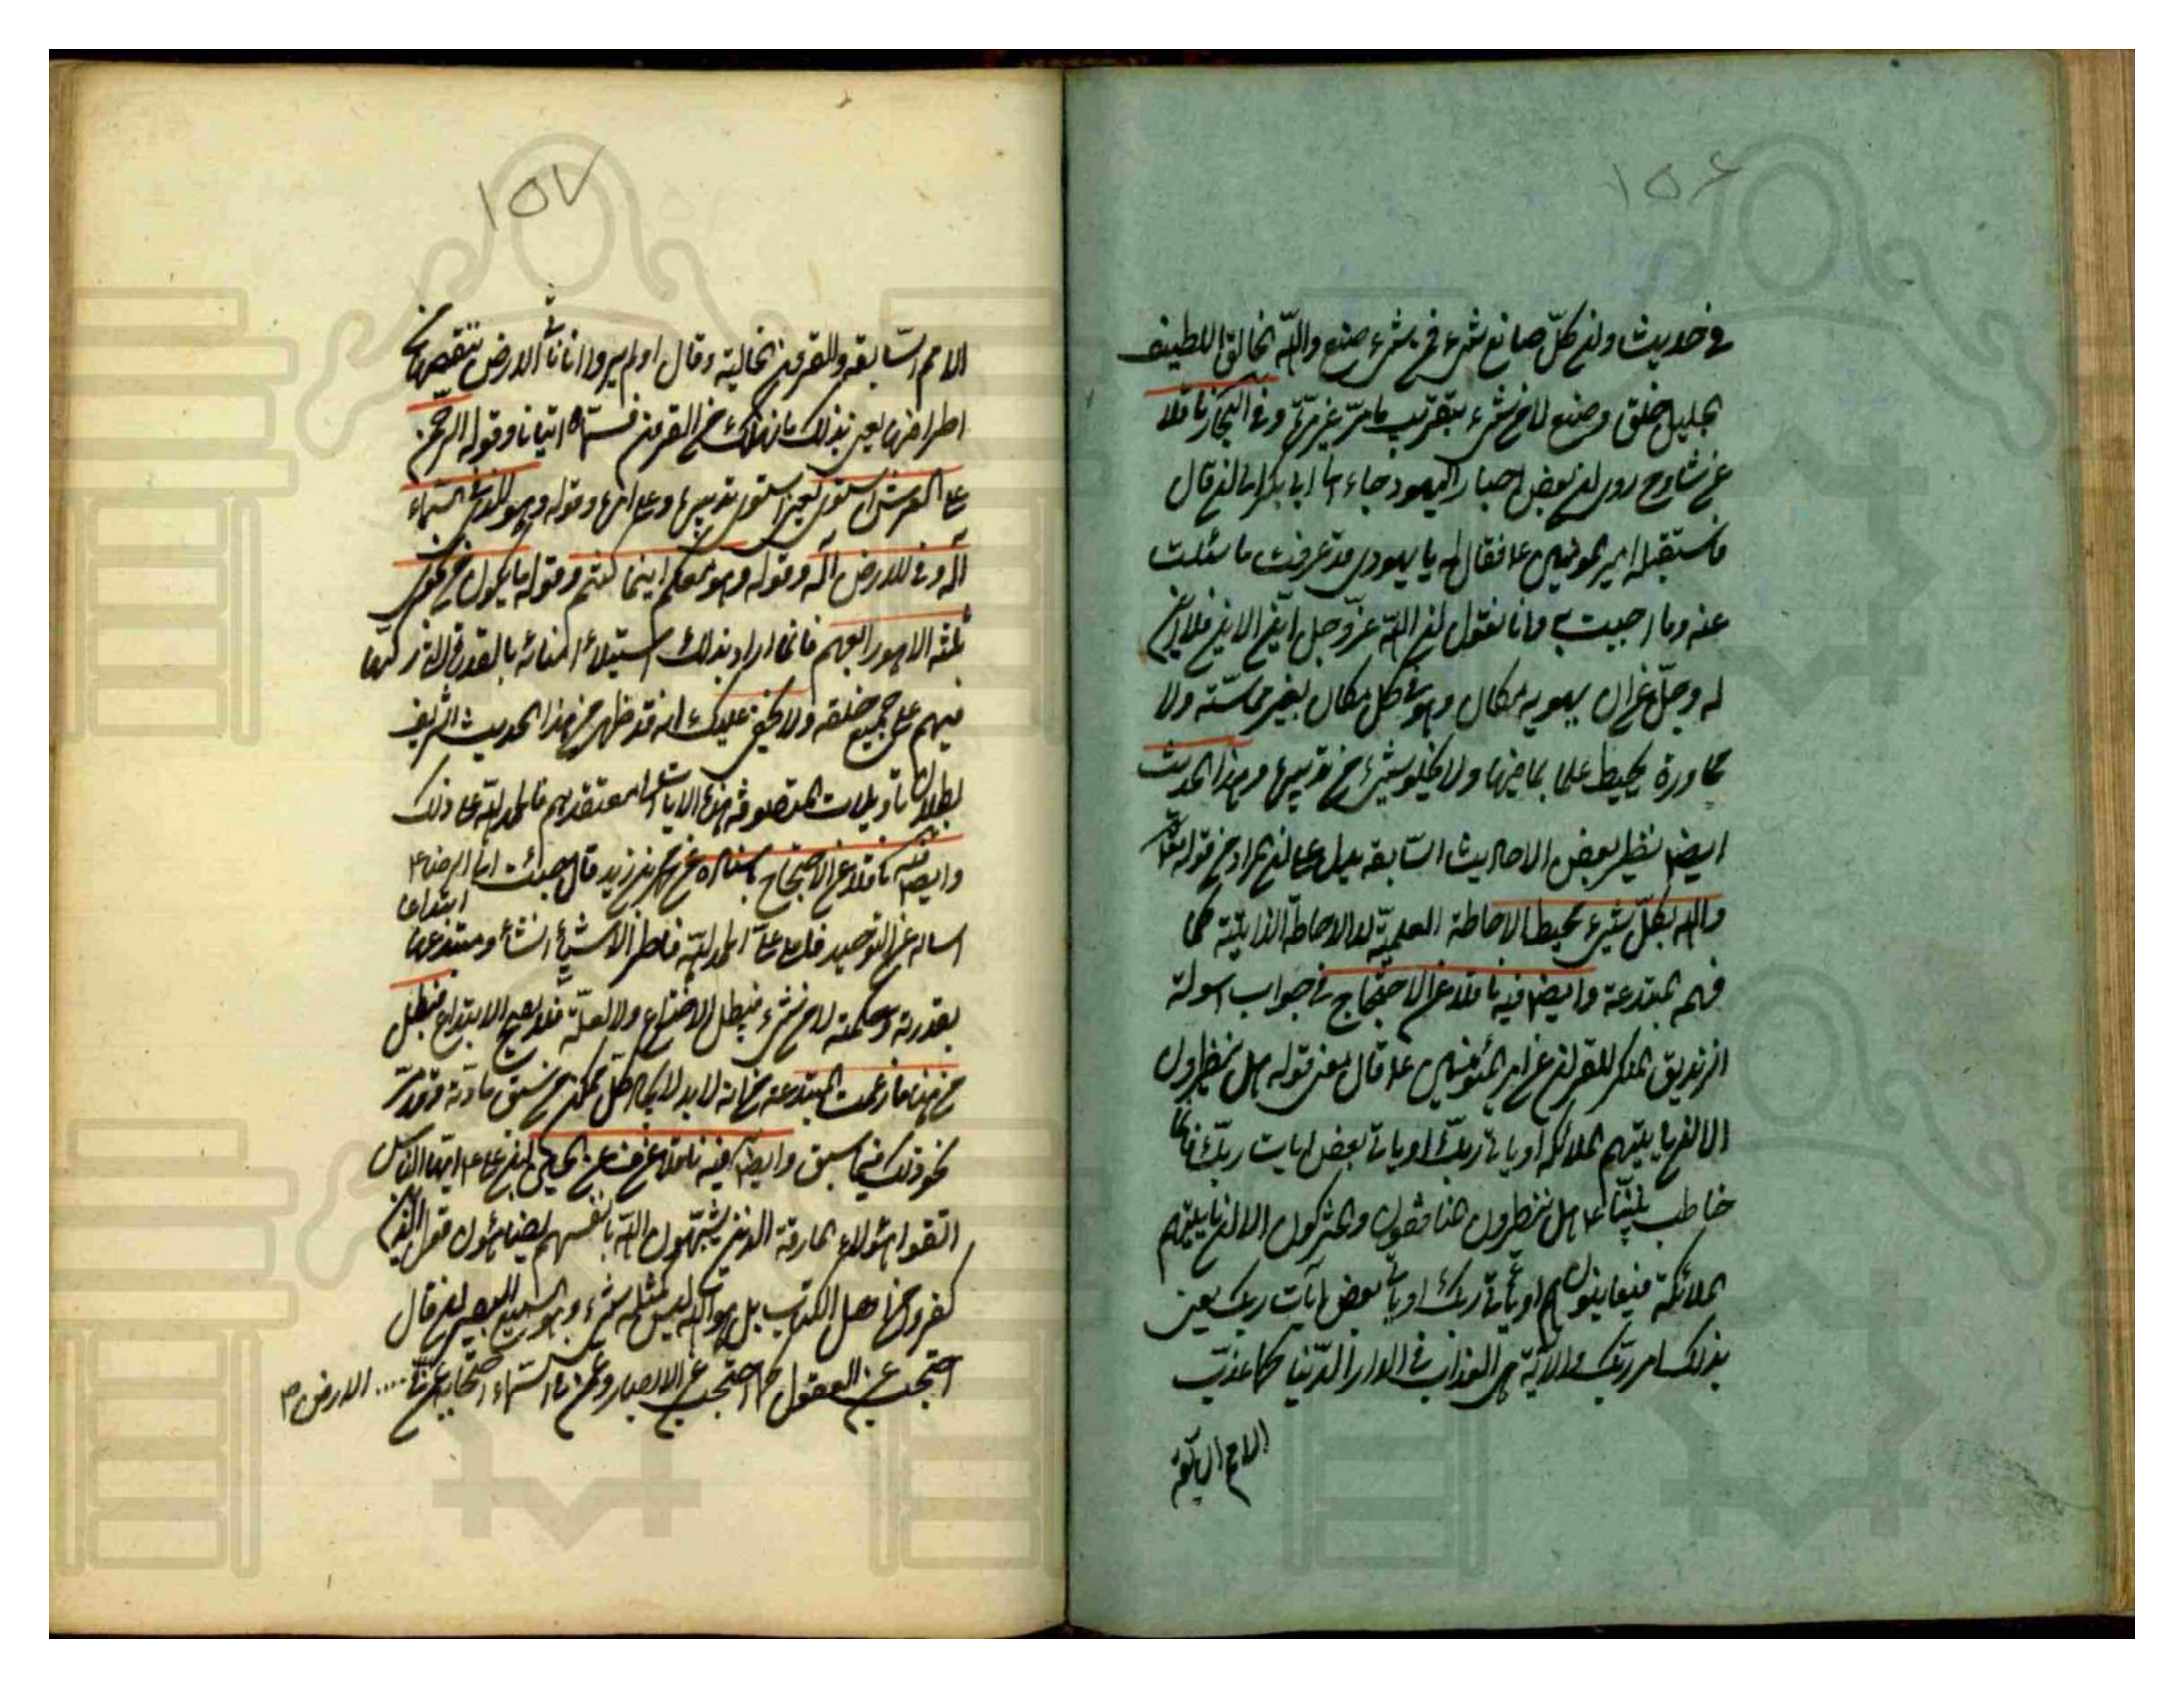 ١٥٦
في حديث وان كل صانع شيء فمن شيء صنع والله الخالق اللطيف
الجليل خلق وصنع لا من شيء بتقريب ما مر غير مرة وفي البحار ناقلا
عن شاوح روى ان بعض احبار اليهود جاء الى ابي بكر الى ان قال
فاستقبله امير المؤمنين ع فقال له يا يهودي قد عرفت ما سئلت
عنه وما اجبت به وانا نقول ان الله عز وجل اين الاين فلا اين
له وجل عن ان يحويه مكان وهو في كل مكان بغير مماسة ولا
مجاورة يحيط علما بما فيها ولا يخلو شيء من تدبيره وهذا الحديث
ايضا نظير بعض الاحاديث السابقة يدل على ان المراد من قوله تعالى
والله بكل شيء محيط الاحاطة العلمية لا الاحاطة الذاتية كما
فهمه المبتدعة وايضا فيه ناقلا عن الاحتجاج في جواب اسولة
الزنديق المنكر للقران عن امير المؤمنين ع قال معنى قوله هل ينظرون
الا ان ياتيهم الملائكة او ياتي ربك او ياتي بعض ايات ربك فانما
خاطب نبينا ع هل ينتظرون المنافقون والمشركون الا ان ياتيهم
الملائكة فيعاينوهم او ياتي ربك او ياتي بعض ايات ربك يعني
بذلك امر ربك والاية هي العذاب في الدار الدنيا كما عذب
الامم السابقة
١٥٧
الامم السابقة والقرون الخالية وقال اولم يروا انا ناتي الارض ننقصها من
اطرافها يعني بذلك ما يهلك من القرون فسماه اتيانا وقوله الرحمن
على العرش استوى يعني استوى تدبيره وعلا امره وقوله وهو الذي في السماء
اله وفي الارض اله وقوله وهو معكم اينما كنتم وقوله ما يكون من نجوى
ثلثة الا هو رابعهم فانما اراد بذلك استيلاء امنائه بالقدرة التي ركبها
فيهم على جميع خلقه ولا يخفى عليك انه قد ظهر من هذا الحديث الشريف
بطلان تاويلات المتصوفة هذه الايات الى معتقدهم فالحمد لله على ذلك
وايضا فيه ناقلا عن الاحتجاج باسناده عن محمد بن زيد قال جئت الى الرضا ع
اساله عن التوحيد فاملى علي الحمد لله فاطر الاشياء انشاء ومبتدعها
ابتداعا
بقدرته وحكمته لا من شيء فيبطل الاختراع ولا لعلة فلا يصح الابتداع فبطل
من هنا ما زعمت المبتدعة من انه لا بد لايجاد كل ممكن من سبق مادة وقد مر
نحو ذلك فيما سبق وايضا فيه ناقلا عن ف عن الحسين بن علي ع ايها الناس
اتقوا هؤلاء المارقة الذين يشبهون الله بانفسهم يضاهئون قول الذين
كفروا من اهل الكتاب بل هو الله ليس كمثله شيء وهو السميع البصير الى ان قال
احتجب عن العقول كما احتجب عن الابصار وعمن في السماء احتجابه عمن في .... الارض م